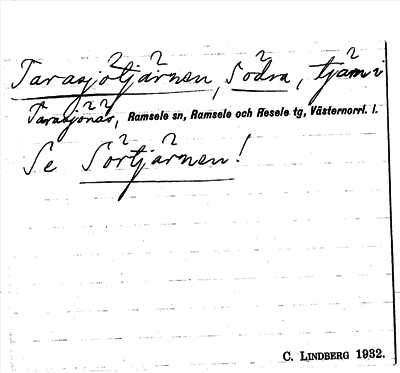 Tarasjötjärnen, Södra, tjärn i
Tarasjönäs, Ramsele sn, Ramsele och Resele tg, Västernorrl. l.
Se Sörtjärnen!
C. LINDBERG 1932.